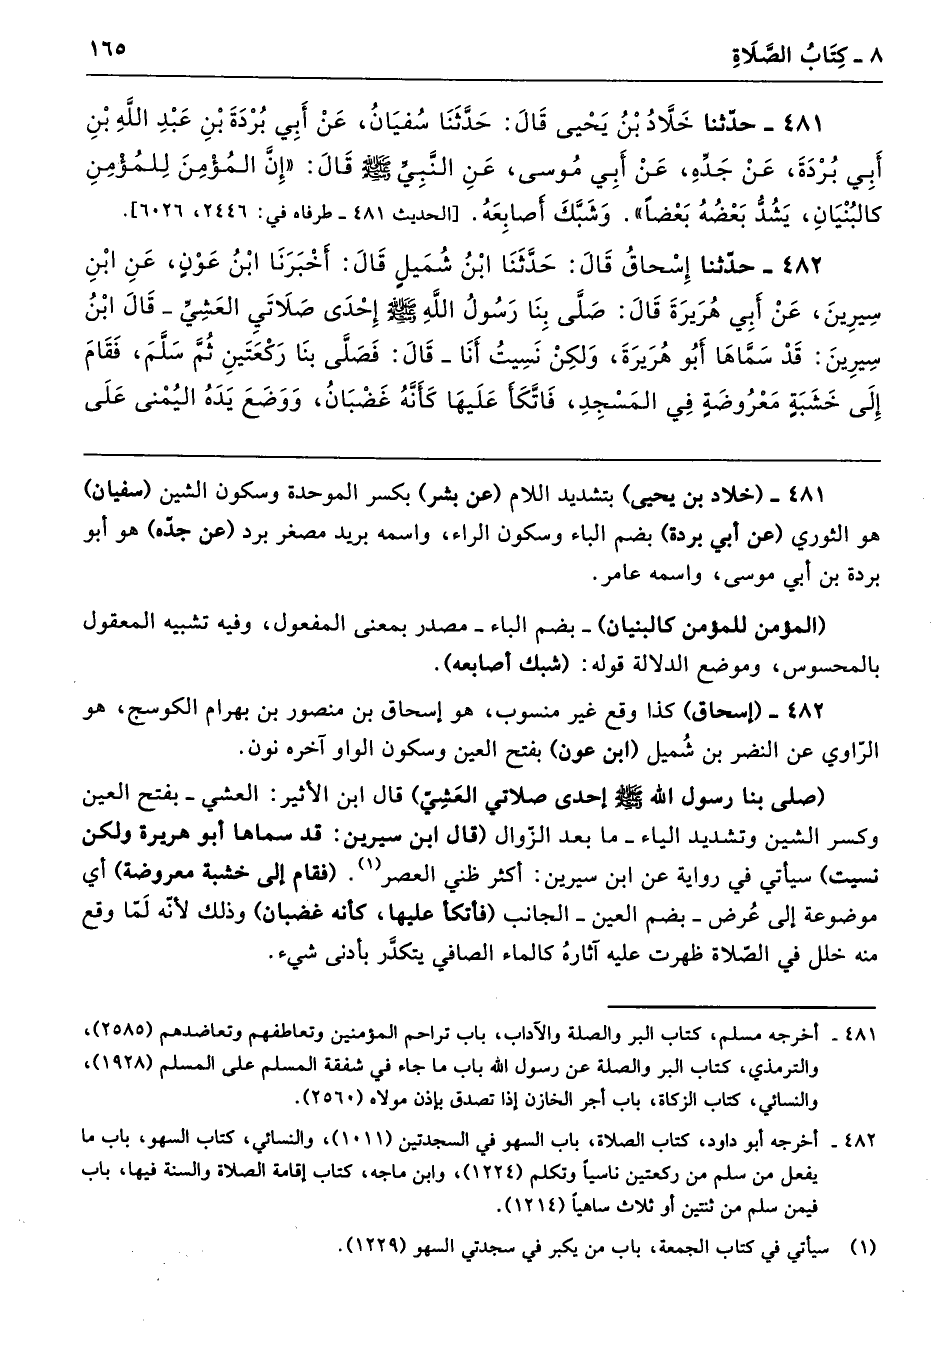 ٨ ـ كِتَابُ الصَّلَاةِ ١٦٥
٤٨١ ـ حدّثنا خَلَّادُ بْنُ يَحْيى قَالَ: حَدَّثَنَا سُفيَانُ، عَنْ أَبِي بُرْدَةَ بْنِ عَبْدِ اللَّهِ بْنِ
أَبِي بُرْدَةَ، عَنْ جَدِّهِ، عَنْ أَبِي مُوسى، عَنِ النَّبِيِّ ﷺ قَالَ: «إِنَّ المُؤْمِنَ لِلمُؤْمِنِ
كالبُنْيَانِ، يَشُدُّ بَعْضُهُ بَعْضاً». وَشَبَّكَ أَصابِعَهُ. [الحديث ٤٨١ ـ طرفاه في: ٢٤٤٦، ٦٠٢٦].
٤٨٢ ـ حدّثنا إِسْحاقُ قَالَ: حَدَّثَنَا ابْنُ شُمَيلٍ قَالَ: أَخْبَرَنَا ابْنُ عَوْنٍ، عَنِ ابْنِ
سِيرِينَ، عَنْ أَبِي هُرَيرَةَ قَالَ: صَلَّى بِنَا رَسُولُ اللَّهِ ﷺ إِحْدَى صَلَاتَيِ العَشِيِّ ـ قَالَ ابْنُ
سِيرِينَ: قَدْ سَمَّاهَا أَبُو هُرَيرَةَ، وَلكِنْ نَسِيتُ أَنَا ـ قَالَ: فَصَلَّى بنَا رَكْعَتَينِ ثُمَّ سَلَّمَ، فَقَامَ
إِلَى خَشَبَةٍ مَعْرُوضَةٍ فِي المَسْجِدِ، فَاتَّكَأَ عَلَيهَا كَأَنَّهُ غَضْبَانُ، وَوَضَعَ يَدَهُ اليُمْنى عَلَى
٤٨١ ـ (خلاد بن يحيى) بتشديد اللام (عن بشر) بكسر الموحدة وسكون الشين (سفيان)
هو الثوري (عن أبي بردة) بضم الباء وسكون الراء، واسمه بريد مصغر برد (عن جدّه) هو أبو
بردة بن أبي موسى، واسمه عامر.
(المؤمن للمؤمن كالبنيان) ـ بضم الباء ـ مصدر بمعنى المفعول، وفيه تشبيه المعقول
بالمحسوس، وموضع الدلالة قوله: (شبك أصابعه).
٤٨٢ ـ (إسحاق) كذا وقع غير منسوب، هو إسحاق بن منصور بن بهرام الكوسج، هو
الرّاوي عن النضر بن شُميل (ابن عون) بفتح العين وسكون الواو آخره نون.
(صلى بنا رسول الله ﷺ إحدى صلاتي العَشِيّ) قال ابن الأثير: العشي ـ بفتح العين
وكسر الشين وتشديد الياء ـ ما بعد الزّوال (قال ابن سيرين: قد سماها أبو هريرة ولكن
نسيت) سيأتي في رواية عن ابن سيرين: أكثر ظني العصر(١). (فقام إلى خشبة معروضة) أي
موضوعة إلى عُرض ـ بضم العين ـ الجانب (فأتكأ عليها، كأنه غضبان) وذلك لأنّه لَمّا وقع
منه خلل في الصّلاة ظهرت عليه آثارهُ كالماء الصافي يتكدَّر بأدنى شيء.
٤٨١ ـ أخرجه مسلم، كتاب البر والصلة والآداب، باب تراحم المؤمنين وتعاطفهم وتعاضدهم (٢٥٨٥)،
والترمذي، كتاب البر والصلة عن رسول الله باب ما جاء في شفقة المسلم على المسلم (١٩٢٨)،
والنسائي، كتاب الزكاة، باب أجر الخازن إذا تصدق بإذن مولاه (٢٥٦٠).
٤٨٢ ـ أخرجه أبو داود، كتاب الصلاة، باب السهو في السجدتين (١٠١١)، والنسائي، كتاب السهو، باب ما
يفعل من سلم من ركعتين ناسياً وتكلم (١٢٢٤)، وابن ماجه، كتاب إقامة الصلاة والسنة فيها، باب
فيمن سلم من ثنتين أو ثلاث ساهياً (١٢١٤).
(١) سيأتي في كتاب الجمعة، باب من يكبر في سجدتي السهو (١٢٢٩).